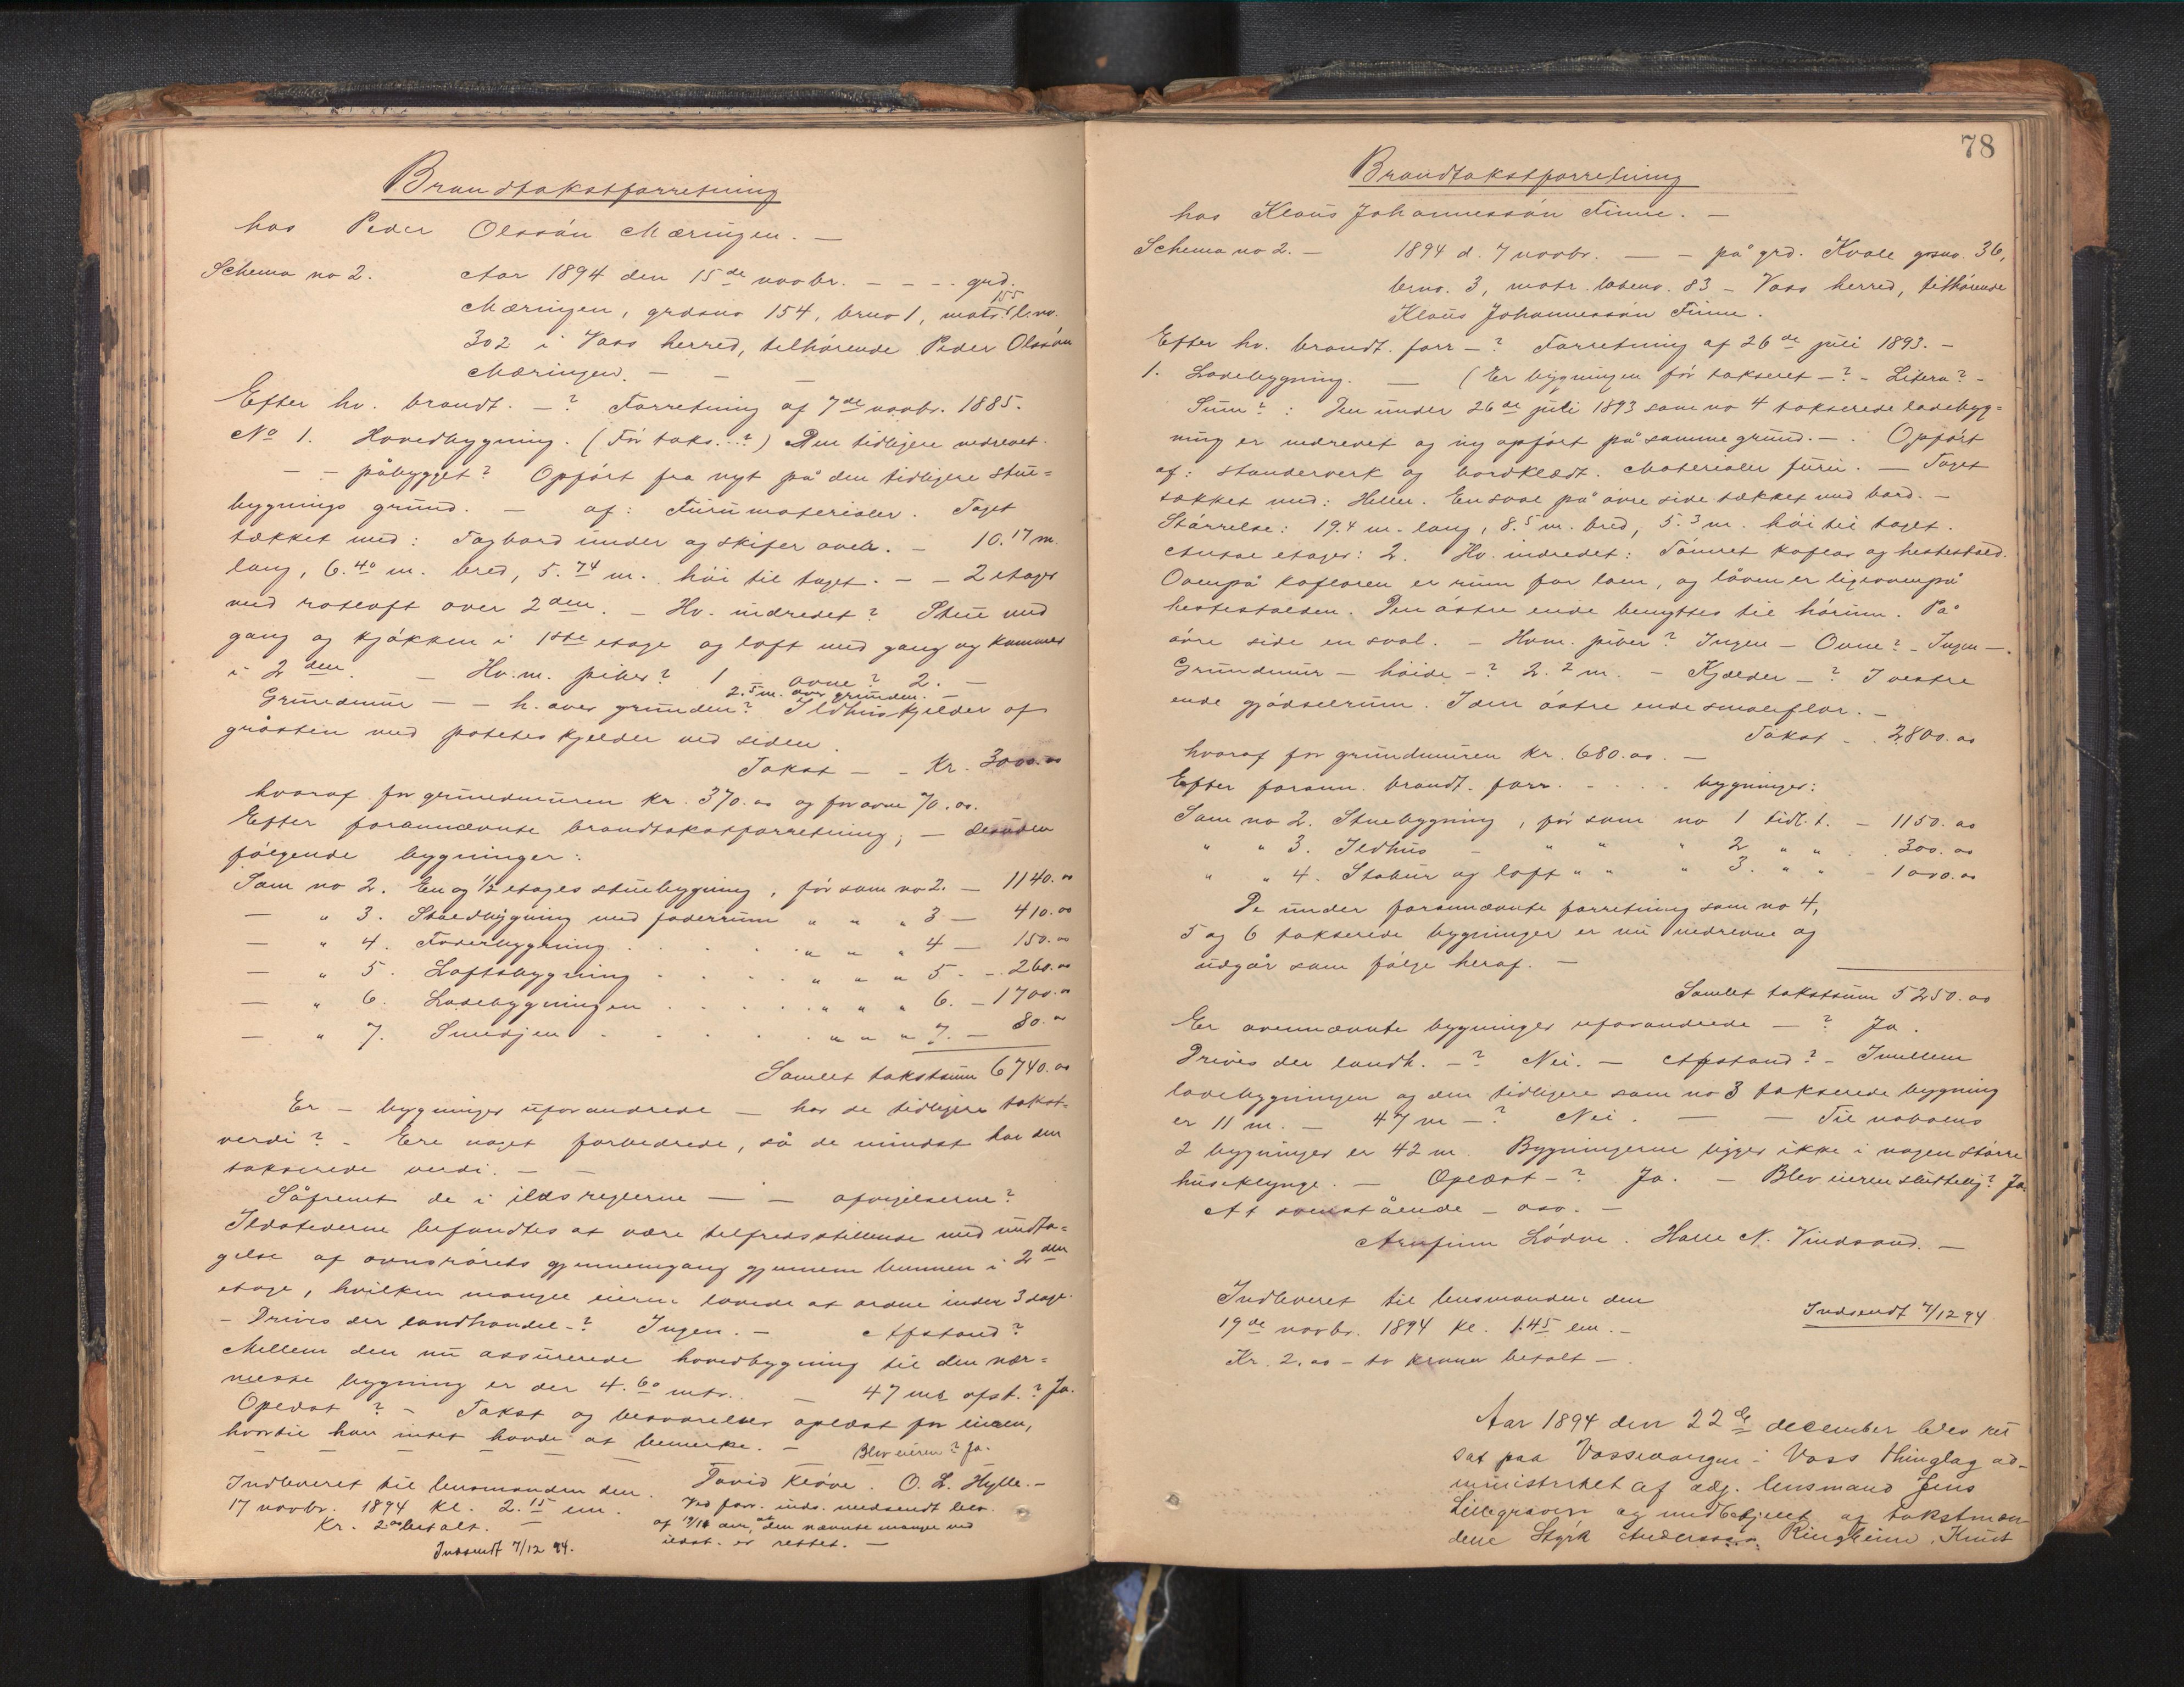 Brandtakstforretning
hos Peder Olssån Mæringen. —
Schema no 2. Aar 1894 den 15de novbr. — — — grd.
Mæringen, grdsno 154, brno 1, matr. l.no. 155
302 i Voss herred, tilhørende Peder Olssån
Mæringen. — — —
Efter hv. brandt. —? Forretning af 7de novbr. 1885.
No 1. Hovedbygning. (Før taks...?) Den tidligere nedrevet.
— — påbygget? Opført fra nyt på den tidligere stue=
bygnings grund. — af: Furumaterialer. Taget
tækket med: Tagbord under og skifer oven. — 10.17 m.
lang, 6.40 m. bred, 5.74 m. høi til taget. — — 2 etages
med rotloft over 2den. — Hv. indredet? Stue med
gang og kjøkken i 1ste etage og loft med gang og kammer
i 2den. — Hv.m. piber? 1 — ovne? 2. —
2.5 m. over grunden. —
Grundmur — — h. over grunden? Ildhuskjelder af
gråsten med potetes kjelder ved siden.
Takst — — Kr. 3000.00
hvoraf for grundmuren kr. 370.00 og for ovne 70.00.
Efter forannævnte brandtakstforretning; — desuden
følgende bygninger:
Som no 2. En og 1/2 etages stuebygning, før som no 2. — 1140.00
— " 3. Staldbygning med foderrum " " " 3 — 410.00
— " 4. Foderbygning . . . . " " " 4 — 150.00
— " 5. Loftsbygning . . . . " " " 5 — 260.00
— " 6. Ladebygningen . . . . " " " 6. — 1700.00
— " 7. Smedjen . . . . . " " " 7. — 80.00
Samlet takstsum 6740.00
Er — bygninger uforandrede — har de tidligere takst-
verdi? — Ere noget forbedrede, så de mindst har den
takserede verdi. — —
Såfremt de i ildsreglerne — — afvigelserne?
Ildstederne befandtes at være tilfredsstillende med undta=
gelse af ovnsrørets gjennemgang gjennem bunnen i 2den
etage, hvilken mangel eieren lovede at ordne inden 3 dage.
— Drives der landhandel —? Ingen. — Afstand?
Mellem den nu assurerede hovedbygning til den nær=
meste bygning er der 4.60 mtr. — 47 mr afst.? Ja.
Oplæst? — Takst og besvarelser oplæst for eieren,
hvortil han intet havde at bemerke. — Blev eieren? Ja.
Indleveret til lensmanden den Tavid Kløve. O. L. Hylle. —
17 novbr. 1894 kl. 2.15 em. Ved forr. inds. medsendt bev.
Kr. 2.00 betalt. — af 19/11 om, at den nævnte mangel ved
Indsendt 7/12 94. ildst. er rettet. —
78
Brandtakstforretning
hos Klaus Johannessån Finne. —
Schema no 2. — 1894 d. 7 novbr. — — på grd. Kvale grsno. 36,
brno. 3, matr. løbeno. 83 — Voss herred, tilhørende
Klaus Johannessån Finne.
Efter hv. brandt. forr —? Forretning af 26de juli 1893. —
1. Ladebygning. — (Er bygningen før takseret —? — Litera? —
Sum?: Den under 26de juli 1893 som no 4 takserede ladebyg=
ning er nedrevet og ny opført på samme grund. —. Opført
af: standerverk og bordklædt. Materialer furu. — Taget
tækket med: Heller. En sval på øvre side tækket med bord. —
Størrelse: 19.4 m. lang, 8.5 m. bred, 5.3 m. høi til taget.
Antal etager: 2. Hv. indredet: Tømret koflor og hestestald.
Ovenpå kofloren er rum for løen, og låven er ligeovenpå
hestestalden. Den østre ende benyttes til hørum. På
øvre side en sval. — Hvm. piber? Ingen — Ovne? — Ingen —.
Grundmur — høide —? 2.2 m. — Kjælder —? I vestre
ende gjødselrum. I den østre ende smaleflor. —
Takst — . 2800.00
hvoraf for grundmuren kr. 680.00. —
Efter forann. brandt. forr. — . . . bygninger:
Som no 2. Stuebygning, før som no 1 tidl. t. — 1150.00
" " 3. Ildhus — " " " 2 " " . 300.00
" " 4. Stabur og loft " " " 3. " " — 1000.00
De under forannævnte forretning som no 4,
5 og 6 takserede bygninger er nu nedrevne og
udgår som følge heraf. —
Samlet takstsum 5250.00
Er ovennævnte bygninger uforandrede —? Ja.
Drives der landh. —? Nei. — Afstand? — Imellem
ladebygningen og den tidligere som no 3 takserede bygning
er 11 m. — 47 m —? Nei. — — Til naboens
2 bygninger er 42 m. Bygningerne ligger ikke i nogen større
huseklynge. — Oplæst —? Ja. — Blev eieren sluttelig? Ja.
At ovenstående — osv. —
Arnfinn Lødve. Halle N. Vindsand. —
Indleveret til lensmanden den
19de novbr. 1894 kl. 1.45 em. —
Indsendt 7/12 94
Kr. 2.00 — to kroner betalt —.
Aar 1894 den 22de december blev ret
sat paa Vossevangen i Voss thinglag ad-
ministrihet af adj. lensmand Jens
Lillegraven og medbetjent af takstmæn-
dene Styrk Andersson Ringheim, Knut